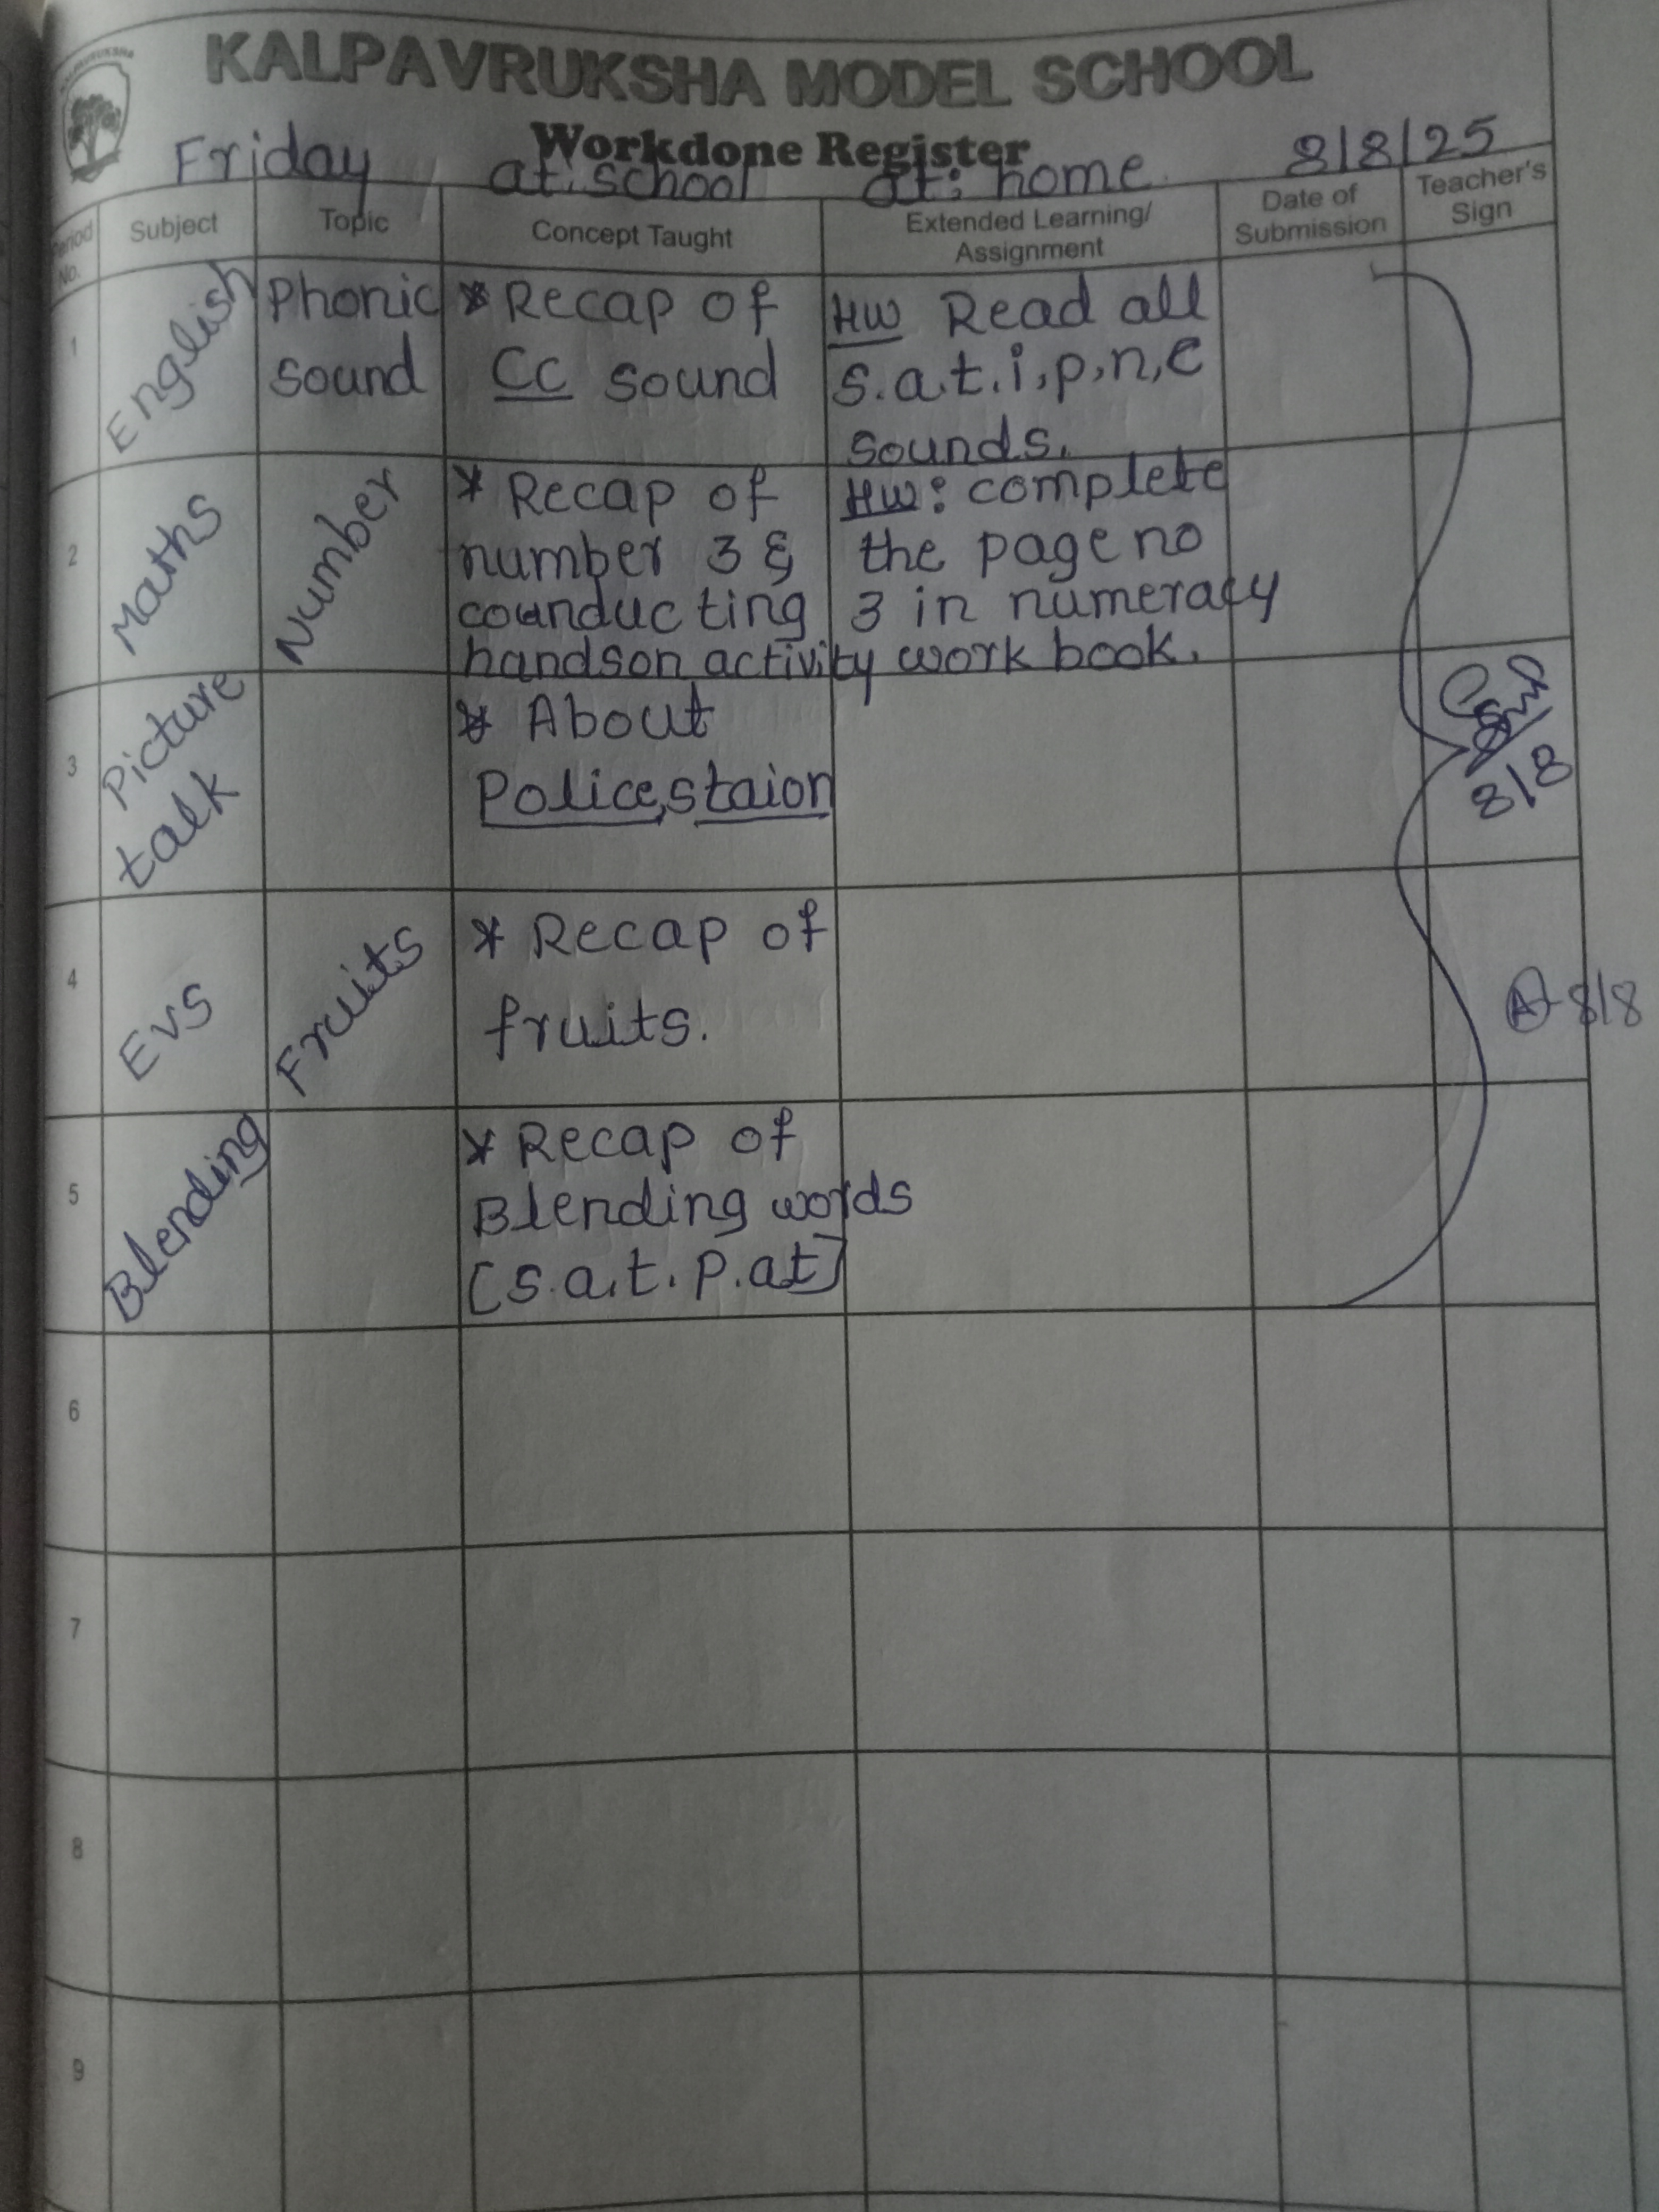 KALPAVRUKSHA
KALPAVRUKSHA MODEL SCHOOL
Workdone Register
Friday at: school at: home 8/8/25
Period No.
Subject
Topic
Concept Taught
Extended Learning/
Assignment
Date of
Submission
Teacher's
Sign
1
English
Phonic
sound
* Recap of
Cc sound
HW Read all
s.a.t.i.p.n,c
sounds.
2
Maths
Number
* Recap of
number 3 &
counducting
handson activity
HW: complete
the page no
3 in numeracy
work book.
3
Picture
talk
* About
Police,staion
8/8
4
Evs
Fruits
* Recap of
fruits.
8/8
5
Blending
* Recap of
Blending words
[s.a.t.p.at]
6
7
8
9